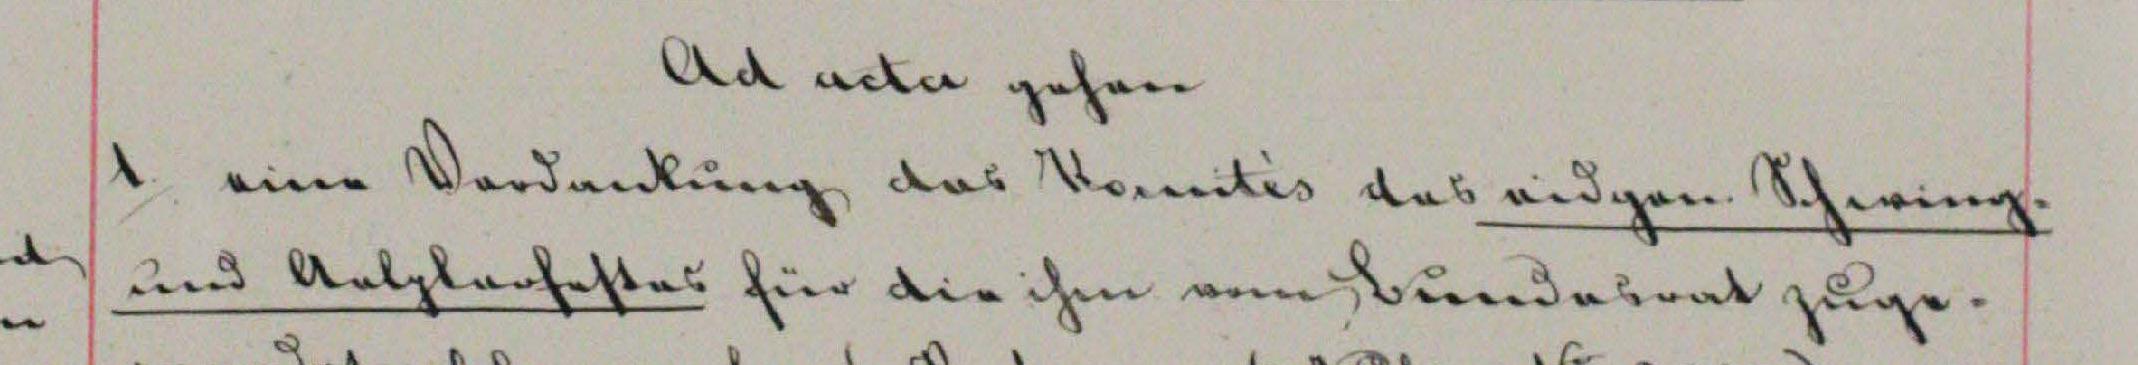 Ad acta gehen
1. eine Verdankung des Komités des eidgen. Schwing-
und Aelplerfestes für die ihm vom Bundesrat zuge-